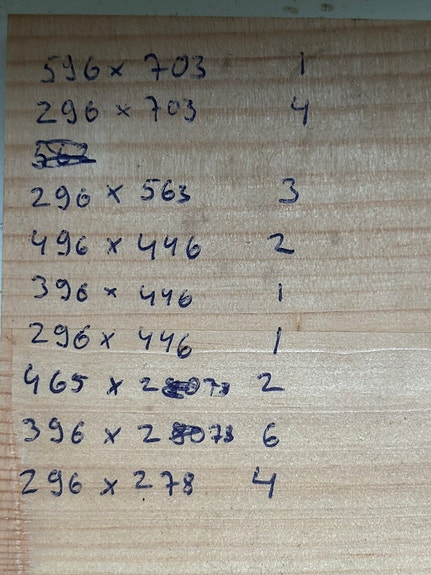 596 x 703 1
296 x 703 4
296 x 563 3
496 x 446 2
396 x 446 1
296 x 446 1
465 x 278 2
396 x 278 6
296 x 278 4